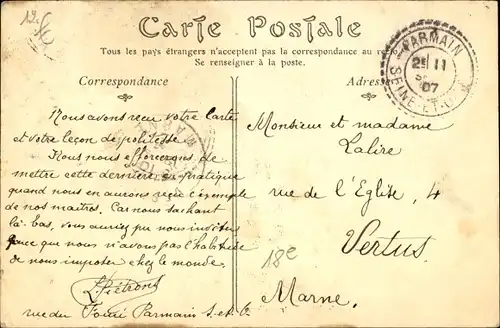 Carte Postale
Tous les pays étrangers n'acceptent pas la correspondance au
Se renseigner à la poste.
Correspondance
Adresse
Nous avons reçu votre Carte
et votre leçon de politesse.
Nous nous efforcerons de
mettre cette dernière en pratique
quand nous en aurons reçu l'exemple
de nos maîtres. Car nous sachant
là-bas, vous auriez pu nous inviter
parce que nous n'avons pas l'habitude
de nous imposer chez le monde.
rue du Parmain S. et O.
Monsieur et madame
Lalire
rue de l'Eglise, 4
Vertus
18e
Marne.
PARMAIN
25 11
07
SEINE-ET-O